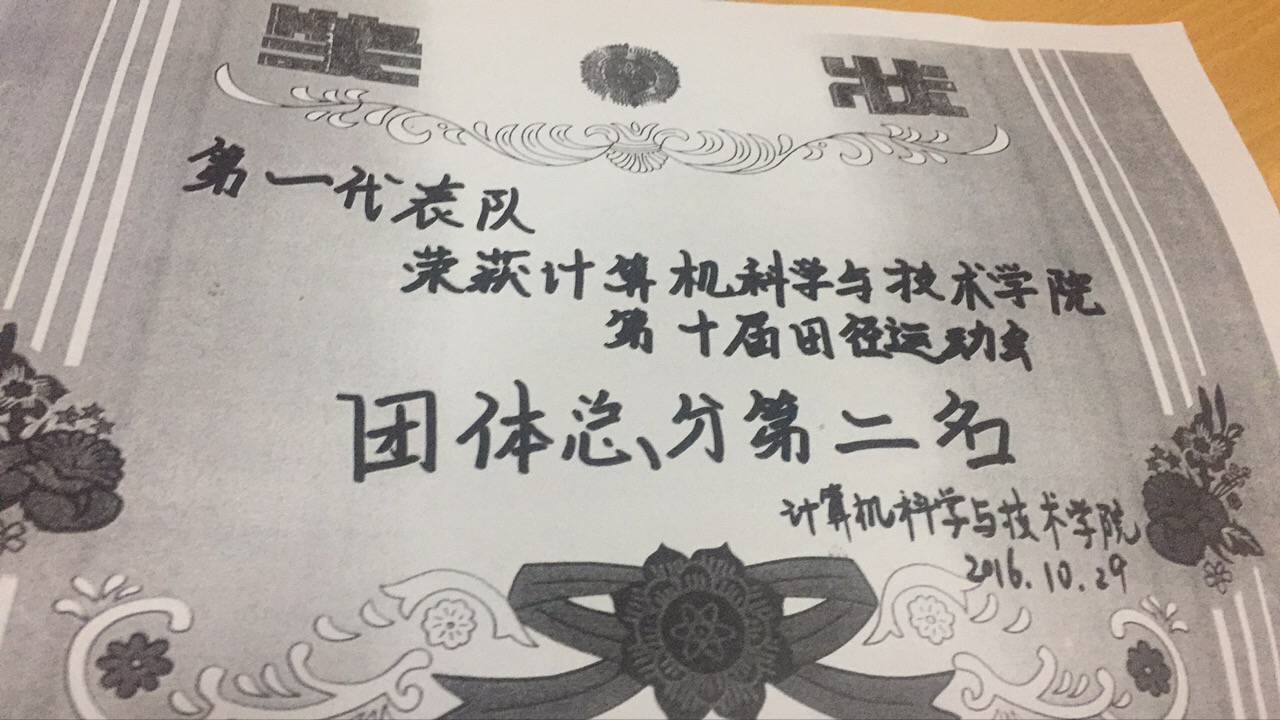 奖 状
第一代表队
荣获计算机科学与技术学院
第十届田径运动会
团体总分第二名
计算机科学与技术学院
2016.10.29